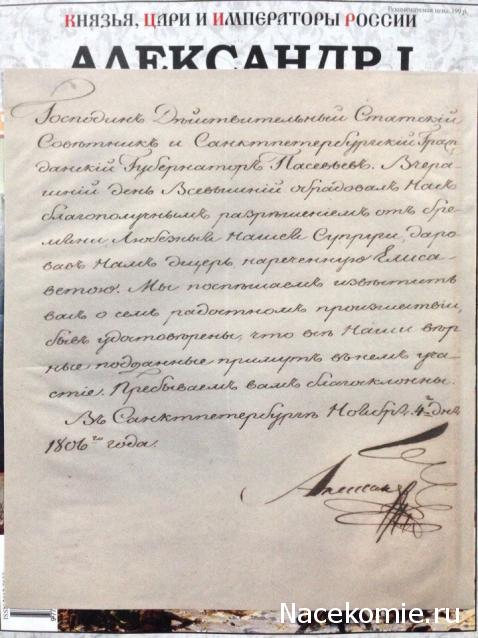 Рекомендуемая цена: 199 р.
КНЯЗЬЯ, ЦАРИ И ИМПЕРАТОРЫ РОССИИ
АЛЕКСАНДР I
Господинъ Дѣйствительный Статскій
Совѣтникъ и Санктпетербургскій Граж
данскій Губернаторъ Пасевьевъ. Вчера
шній день Всевышній обрадовалъ Насъ
благополучнымъ разрѣшеніемъ отъ бре
мени, Любезныя Нашей Супруги, даро
вавъ Намъ дщерь, нареченную Елиса
ветою. Мы поспѣшаемъ извѣстить
васъ о семъ радостномъ происшествіи,
бывъ удостовѣрены, что всѣ Наши вѣр
ные подданные примутъ въ немъ уча
стіе. Пребываемъ вамъ благосклонны.
Въ Санктпетербургѣ Ноября 4го дня
1806го года.
Александръ
ISS
Nacekomie.ru